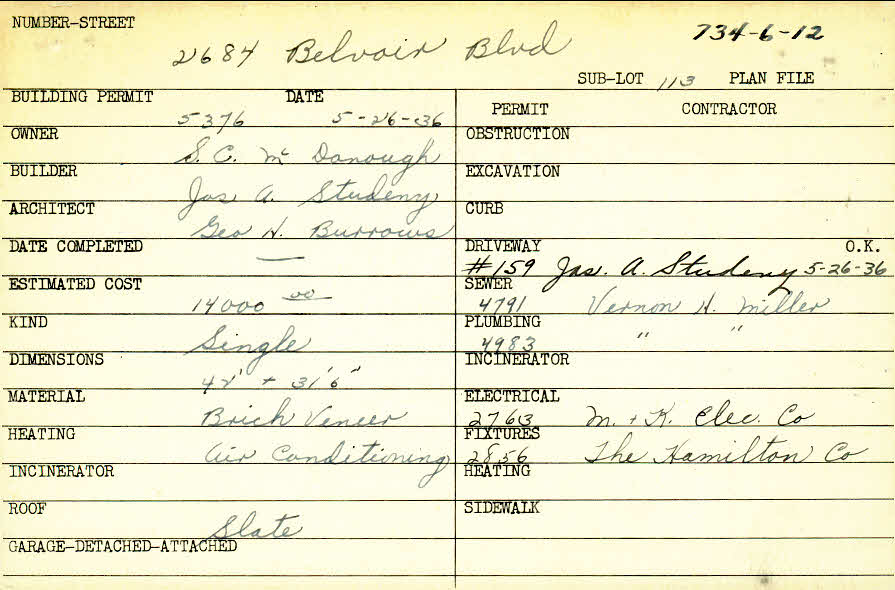 NUMBER-STREET
2684 Belvoir Blvd
734-6-12
SUB-LOT 113 PLAN FILE
BUILDING PERMIT DATE
5376 5-26-36
OWNER
S. C. McDonough
BUILDER
Jas A. Studeny
ARCHITECT
Geo H. Burrows
DATE COMPLETED
—
ESTIMATED COST
14000 00
KIND
Single
DIMENSIONS
42' + 31'6"
MATERIAL
Brick Veneer
HEATING
Air Conditioning
INCINERATOR
ROOF
Slate
GARAGE-DETACHED-ATTACHED
PERMIT CONTRACTOR
OBSTRUCTION
EXCAVATION
CURB
DRIVEWAY O.K.
#159 Jas. A. Studeny 5-26-36
SEWER
4791 Vernon H. Miller
PLUMBING
4983 " "
INCINERATOR
ELECTRICAL
2763 M. + K. Elec. Co
FIXTURES
2856 The Hamilton Co
HEATING
SIDEWALK